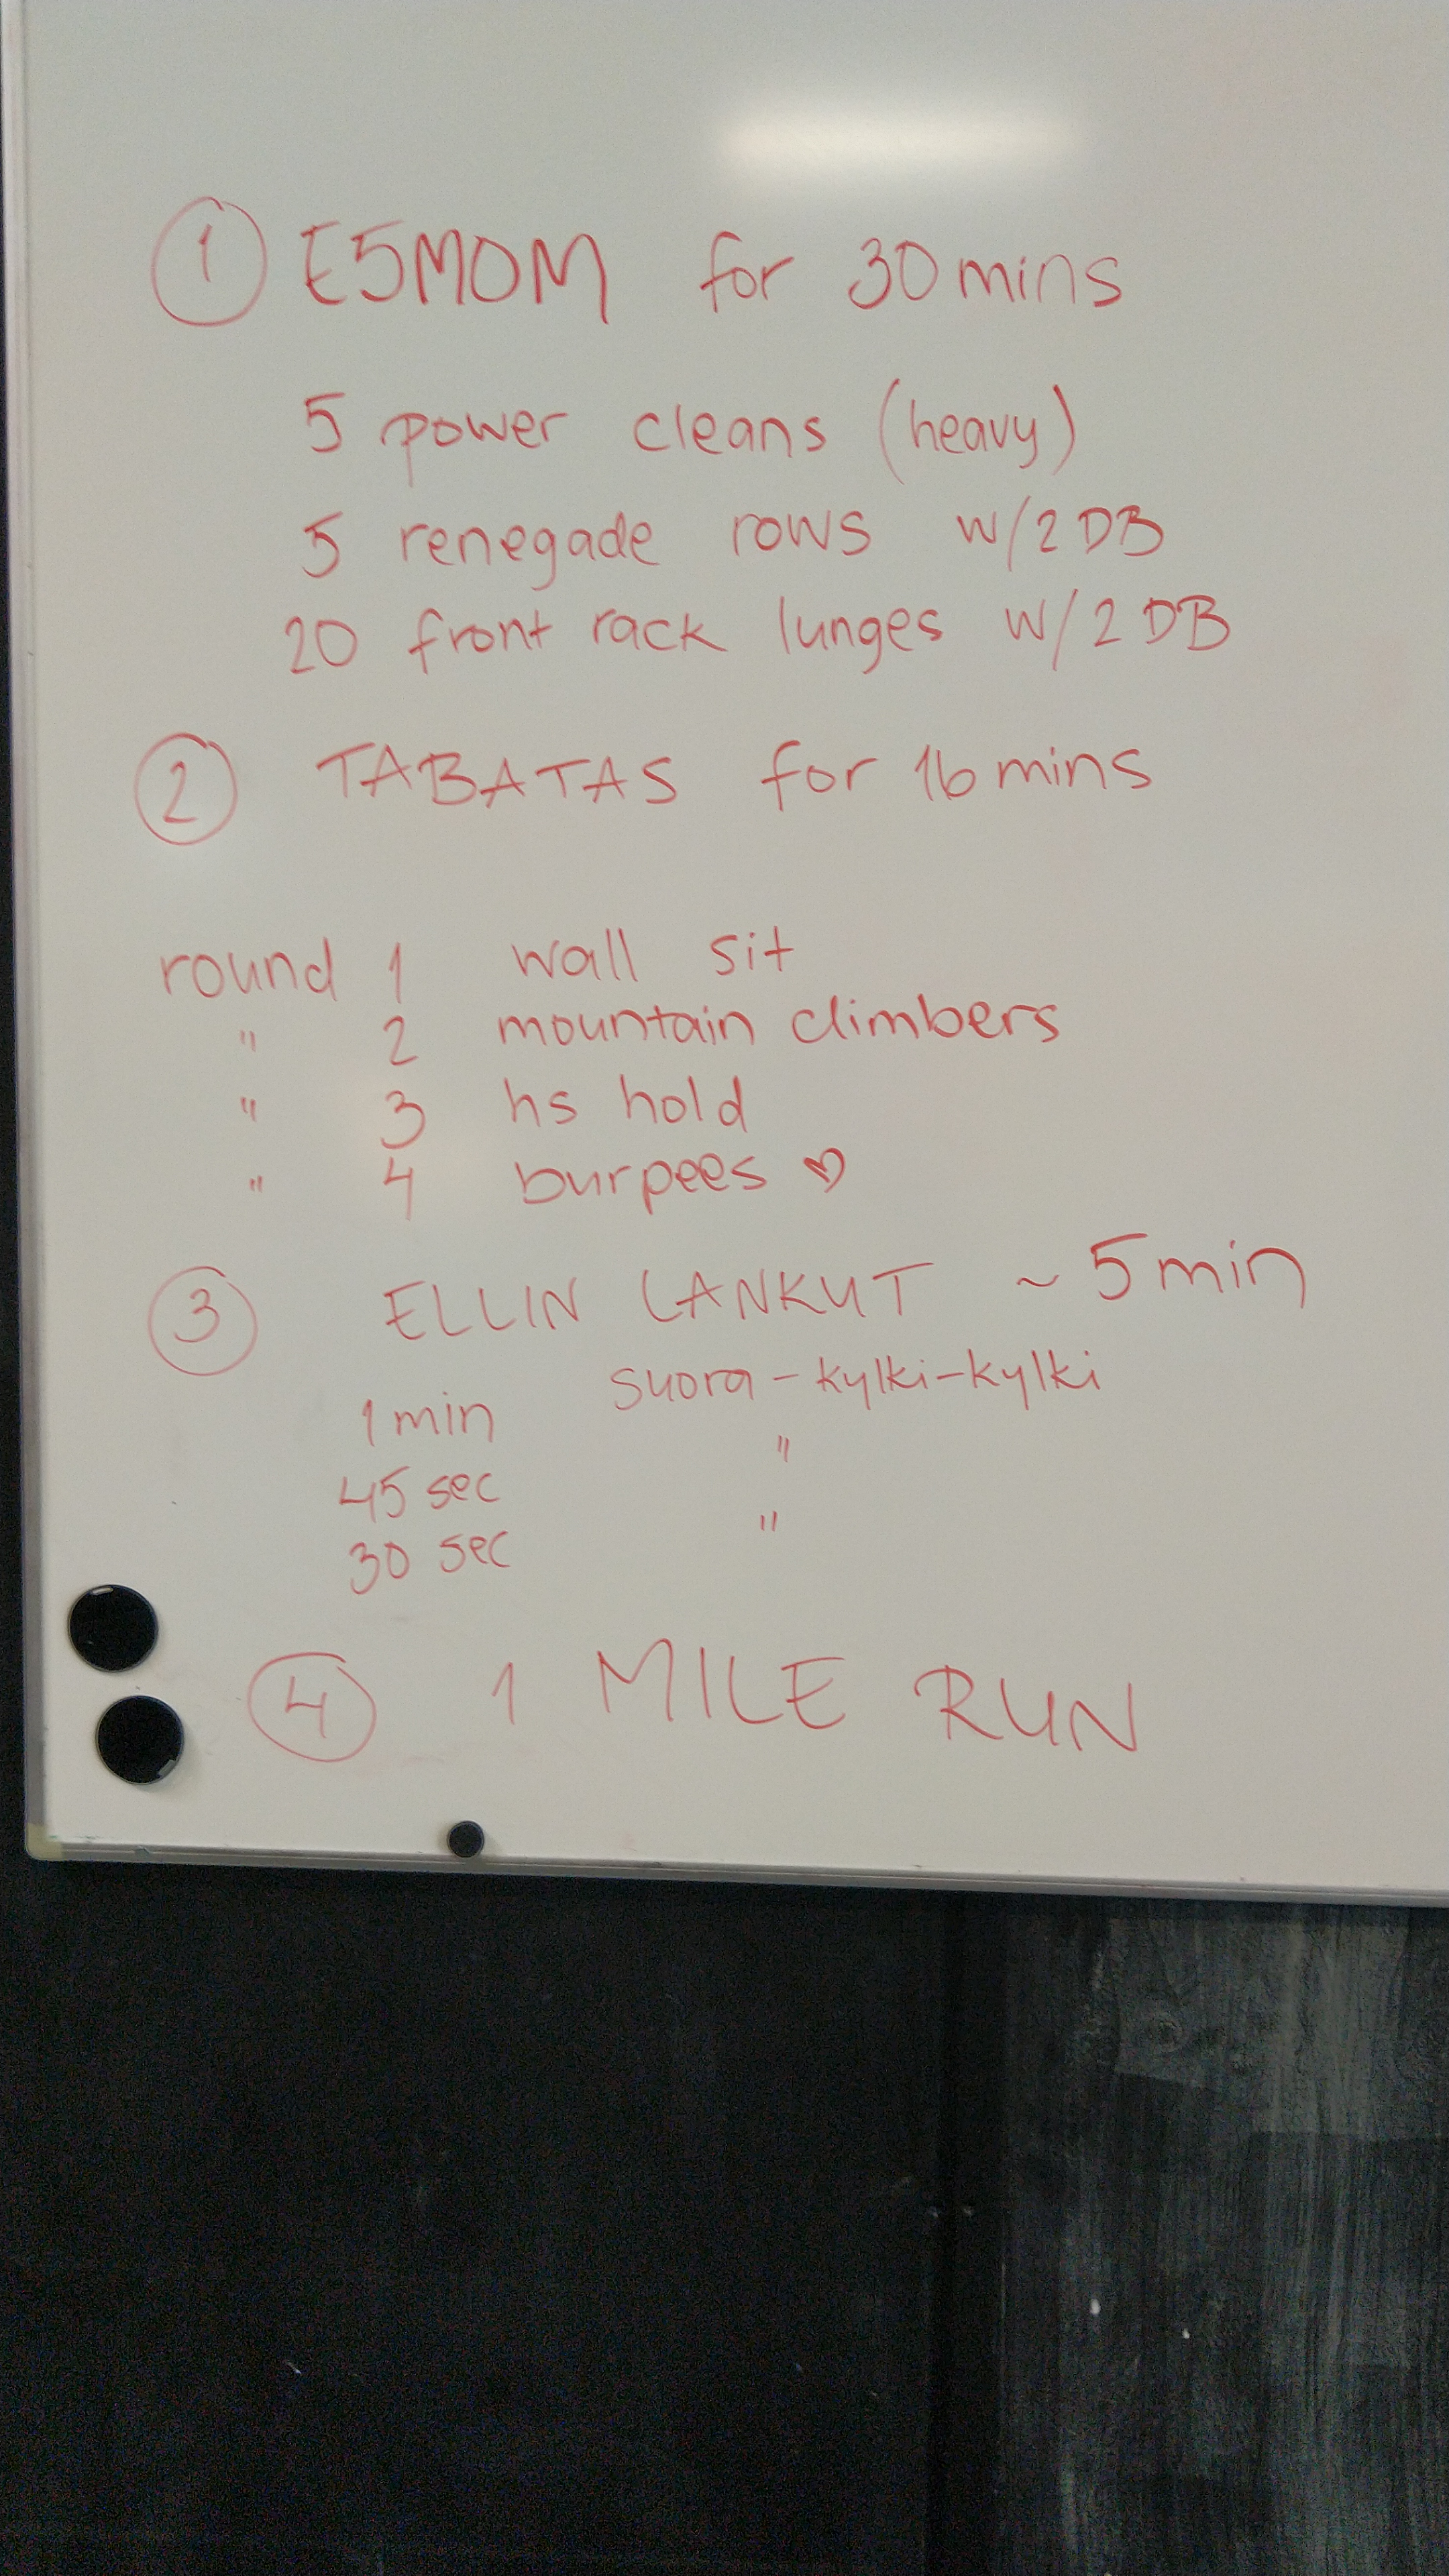 1 E5MOM for 30 mins
5 power cleans (heavy)
5 renegade rows w/2 DB
20 front rack lunges w/2 DB
2 TABATAS for 16 mins
round 1 wall sit
" 2 mountain climbers
" 3 hs hold
" 4 burpees ♡
3 ELLIN LANKUT ~ 5 min
1 min suora-kylki-kylki
45 sec "
30 sec "
4 1 MILE RUN